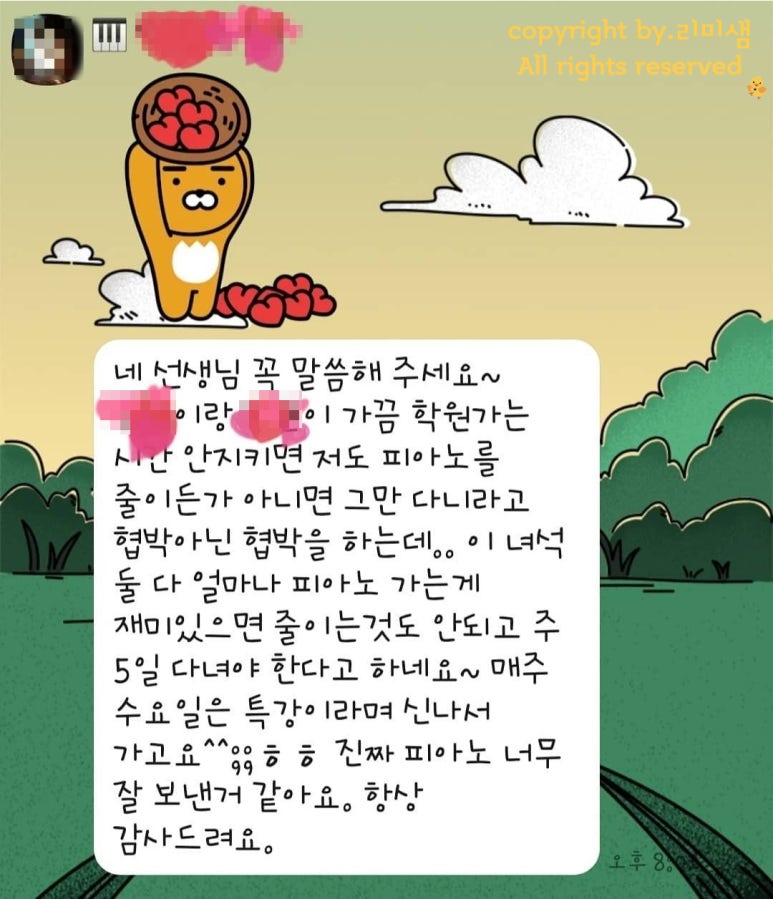 copyright by.리미샘
All rights reserved
네 선생님 꼭 말씀해 주세요~
이랑 이 가끔 학원가는
시간 안지키면 저도 피아노를
줄이든가 아니면 그만 다니라고
협박아닌 협박을 하는데.. 이 녀석
둘 다 얼마나 피아노 가는게
재미있으면 줄이는것도 안되고 주
5일 다녀야 한다고 하네요~ 매주
수요일은 특강이라며 신나서
가고요^^;;ㅎㅎ 진짜 피아노 너무
잘 보낸거 같아요. 항상
감사드려요.
오후